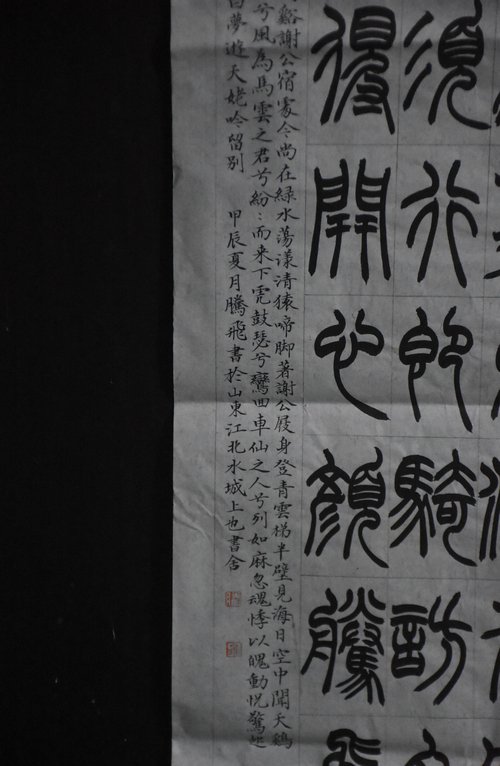 須行即騎訪
得開心顏騰飛
谿謝公宿處今尚在綠水蕩漾清猿啼脚著謝公屐身登青雲梯半壁見海日空中聞天鷄
兮風為馬雲之君兮紛〻而来下虎鼓瑟兮鸞回車仙之人兮列如麻忽魂悸以魄動怳驚起
白夢遊天姥吟留別 甲辰夏月騰飛書於山東江北水城上也書舍